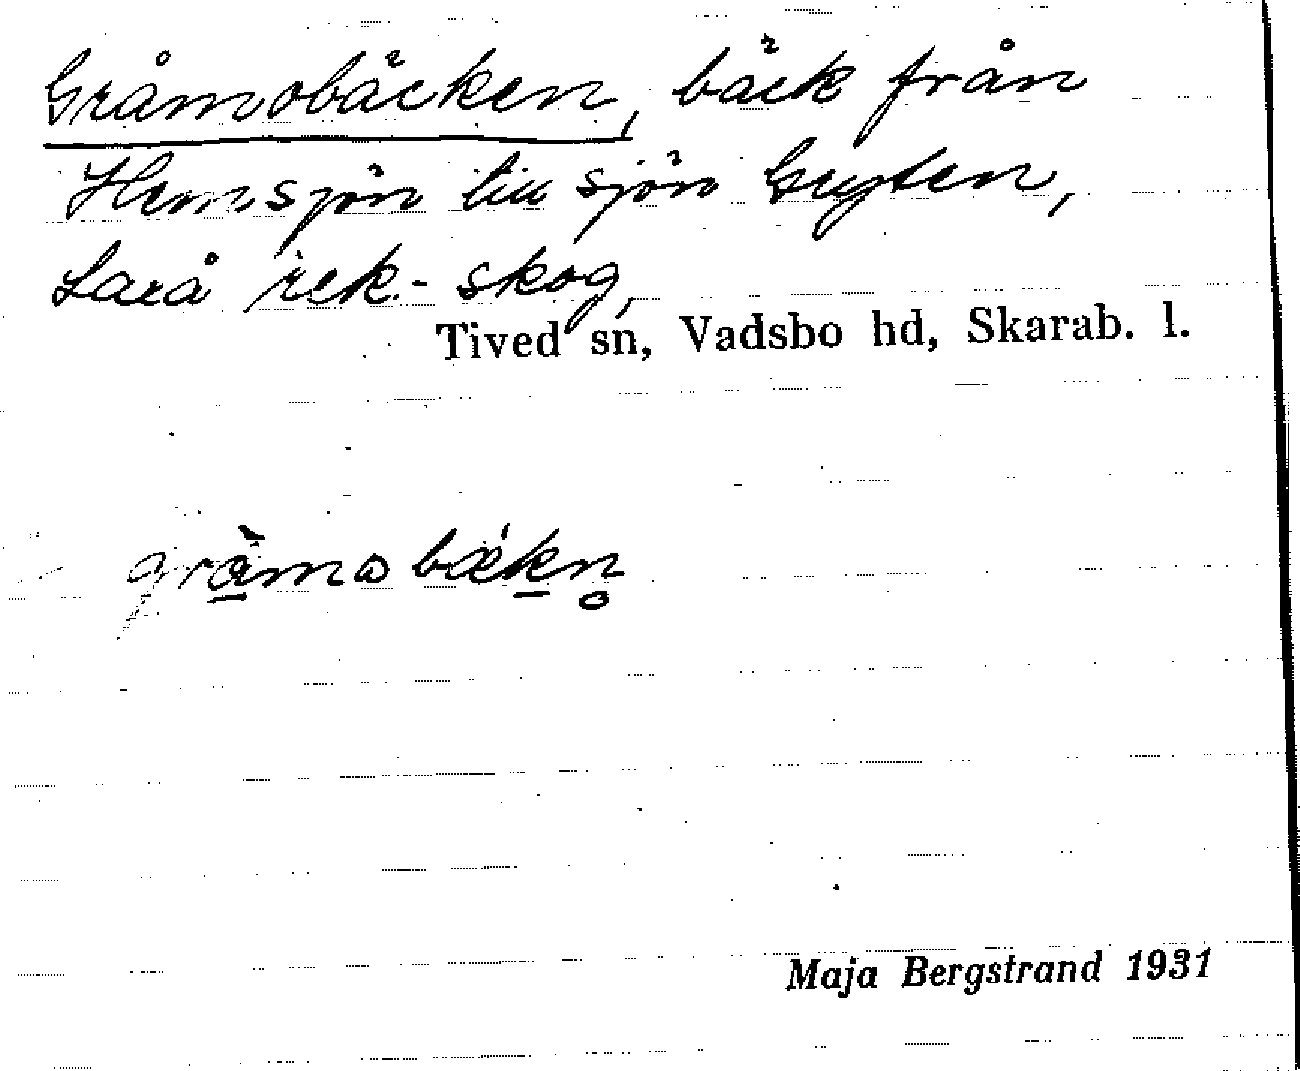 Gråmobäcken, bäck från
Hemsjön till sjön Gryten,
Laxå rek.-skog,
Tived sn, Vadsbo hd, Skarab. l.
Maja Bergstrand 1931